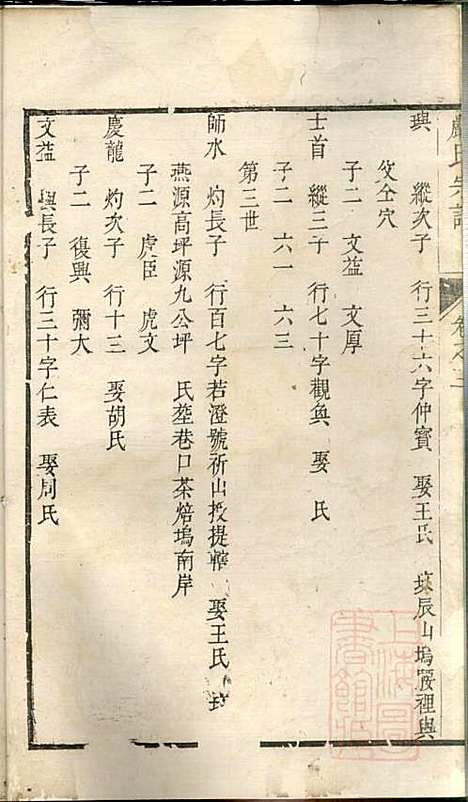 璵　縱次子　行三十六字仲寶　娶王氏　葬辰山塢嶺裡與
父仝穴
子二　文益　文厚
士首　縱三子　行七十字觀奐　娶　氏
子二　六一　六三
第三世
師水　灼長子　行百七字若澄號祈山投提轄　娶王氏　葬
燕源高坪源九公坪　氏塟巷口茶焙塢南岸
子二　虎臣　虎文
慶龍　灼次子　行十三　娶胡氏
子二　復興　彌大
文益　璵長子　行三十字仁表　娶周氏
上海圖書館藏